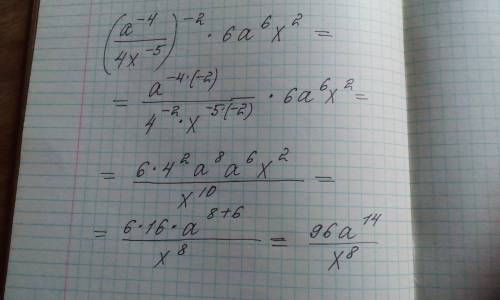 (a⁻⁴/4x⁻⁵)⁻² · 6a⁶x² =
= a⁻⁴·⁽⁻²⁾/4⁻²·x⁻⁵·⁽⁻²⁾ · 6a⁶x² =
= 6·4²a⁸a⁶x²/x¹⁰ =
= 6·16·a⁸⁺⁶/x⁸ = 96a¹⁴/x⁸